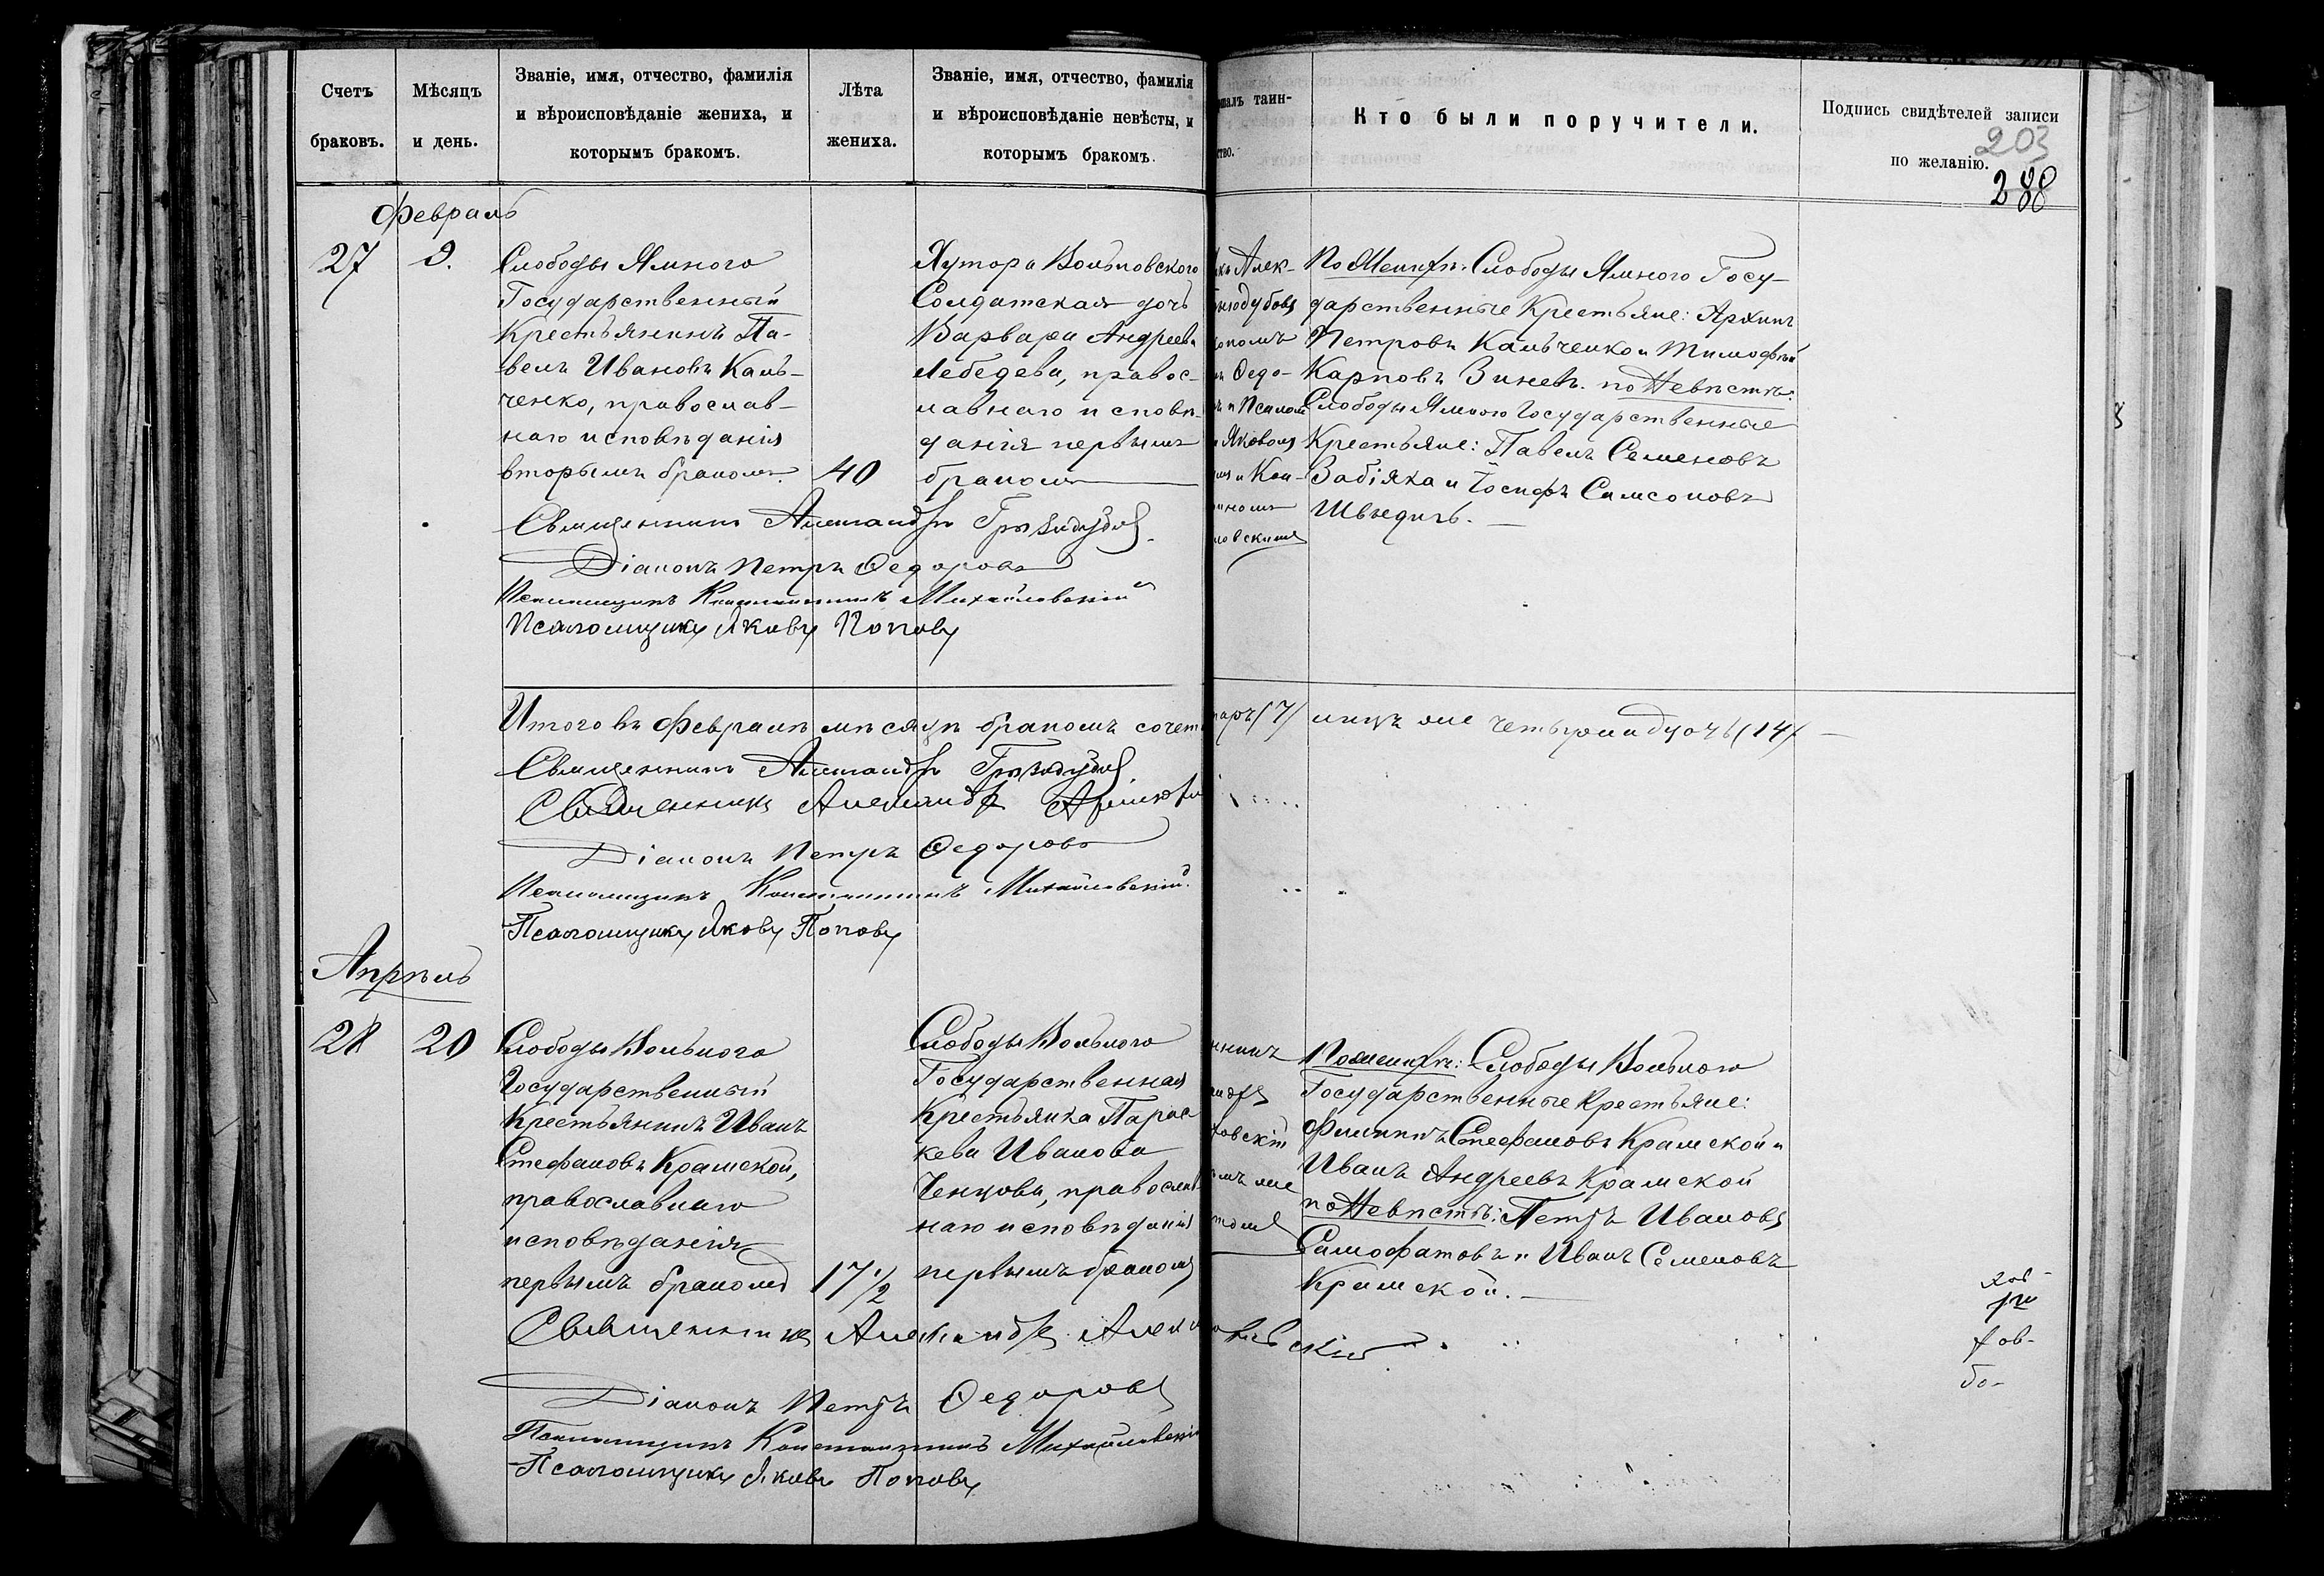 Счетъ
браковъ.
Мѣсяцъ
и день.
Званіе, имя, отчество, фамилія
и вѣроисповѣданіе жениха, и
которымъ бракомъ.
Лѣта
жениха.
Званіе, имя, отчество, фамилія
и вѣроисповѣданіе невѣсты, и
которымъ бракомъ.
таин-
ство.
Кто были поручители.
Подпись свидѣтелей записи
по желанію.
203
288
Февраль
27
Слободы Ямного
Государственный
Крестьянинъ Па-
велъ Ивановъ Каль-
ченко, православ-
наго исповѣданія
вторымъ бракомъ.
40
Хутора Вольновского
Солдатская дочь
Варвара Андреева
Лебедева, правос-
лавнаго исповѣ-
данія первымъ
бракомъ
Алек-
Федо-
и Псалом
Яковом
и Кон-
По Женихѣ: Слободы Ямного Госу-
дарственные Крестьяне: Архипъ
Петровъ Кальченко и Тимофѣй
Карповъ Зинев. по Невѣстѣ:
Слободы Ямного Государственные
Крестьяне: Павелъ Семеновъ
Забіяка и Іосифъ Самсоновъ
Шведичъ.
Священникъ Александръ
Діаконъ Петръ Федоровъ
Псаломщикъ Константинъ Михайловскій
Псаломщикъ Яковъ Поповъ
Итого въ Февралѣ мѣсяцѣ бракомъ сочет
паръ (7) лицъ же четырнадцать (14)
Священникъ Александръ
Священникъ Александръ
Діаконъ Петръ Федоровъ
Псаломщикъ Константинъ Михайловскій
Псаломщикъ Яковъ Поповъ
Апрѣль
28
20
Слободы Вольного
Государственный
Крестьянинъ Иванъ
Стефановъ Крамской,
православнаго
исповѣданія
первымъ бракомъ
17 1/2
Слободы Вольного
Государственная
Крестьянка Парас
кева Иванова
Ченцова, православ
наго исповѣданія
первымъ бракомъ
По женихѣ: Слободы Вольного
Государственные Крестьяне:
Филиппъ Стефановъ Крамской и
Иванъ Андреевъ Крамской
по Невѣстѣ: Петръ Ивановъ
Самофатовъ и Иванъ Семеновъ
Крамской.
Священникъ Александръ
Діаконъ Петръ Федоровъ
Псаломщикъ Константинъ Михайловскій
Псаломщикъ Яковъ Поповъ